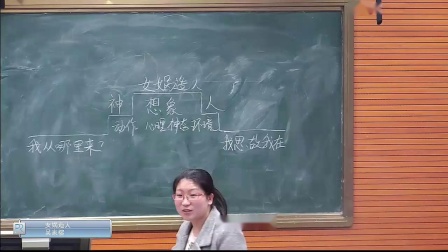 女娲造人
神 想象 人
动作 心理 神态 环境
我从哪里来? 我思故我在
女娲造人